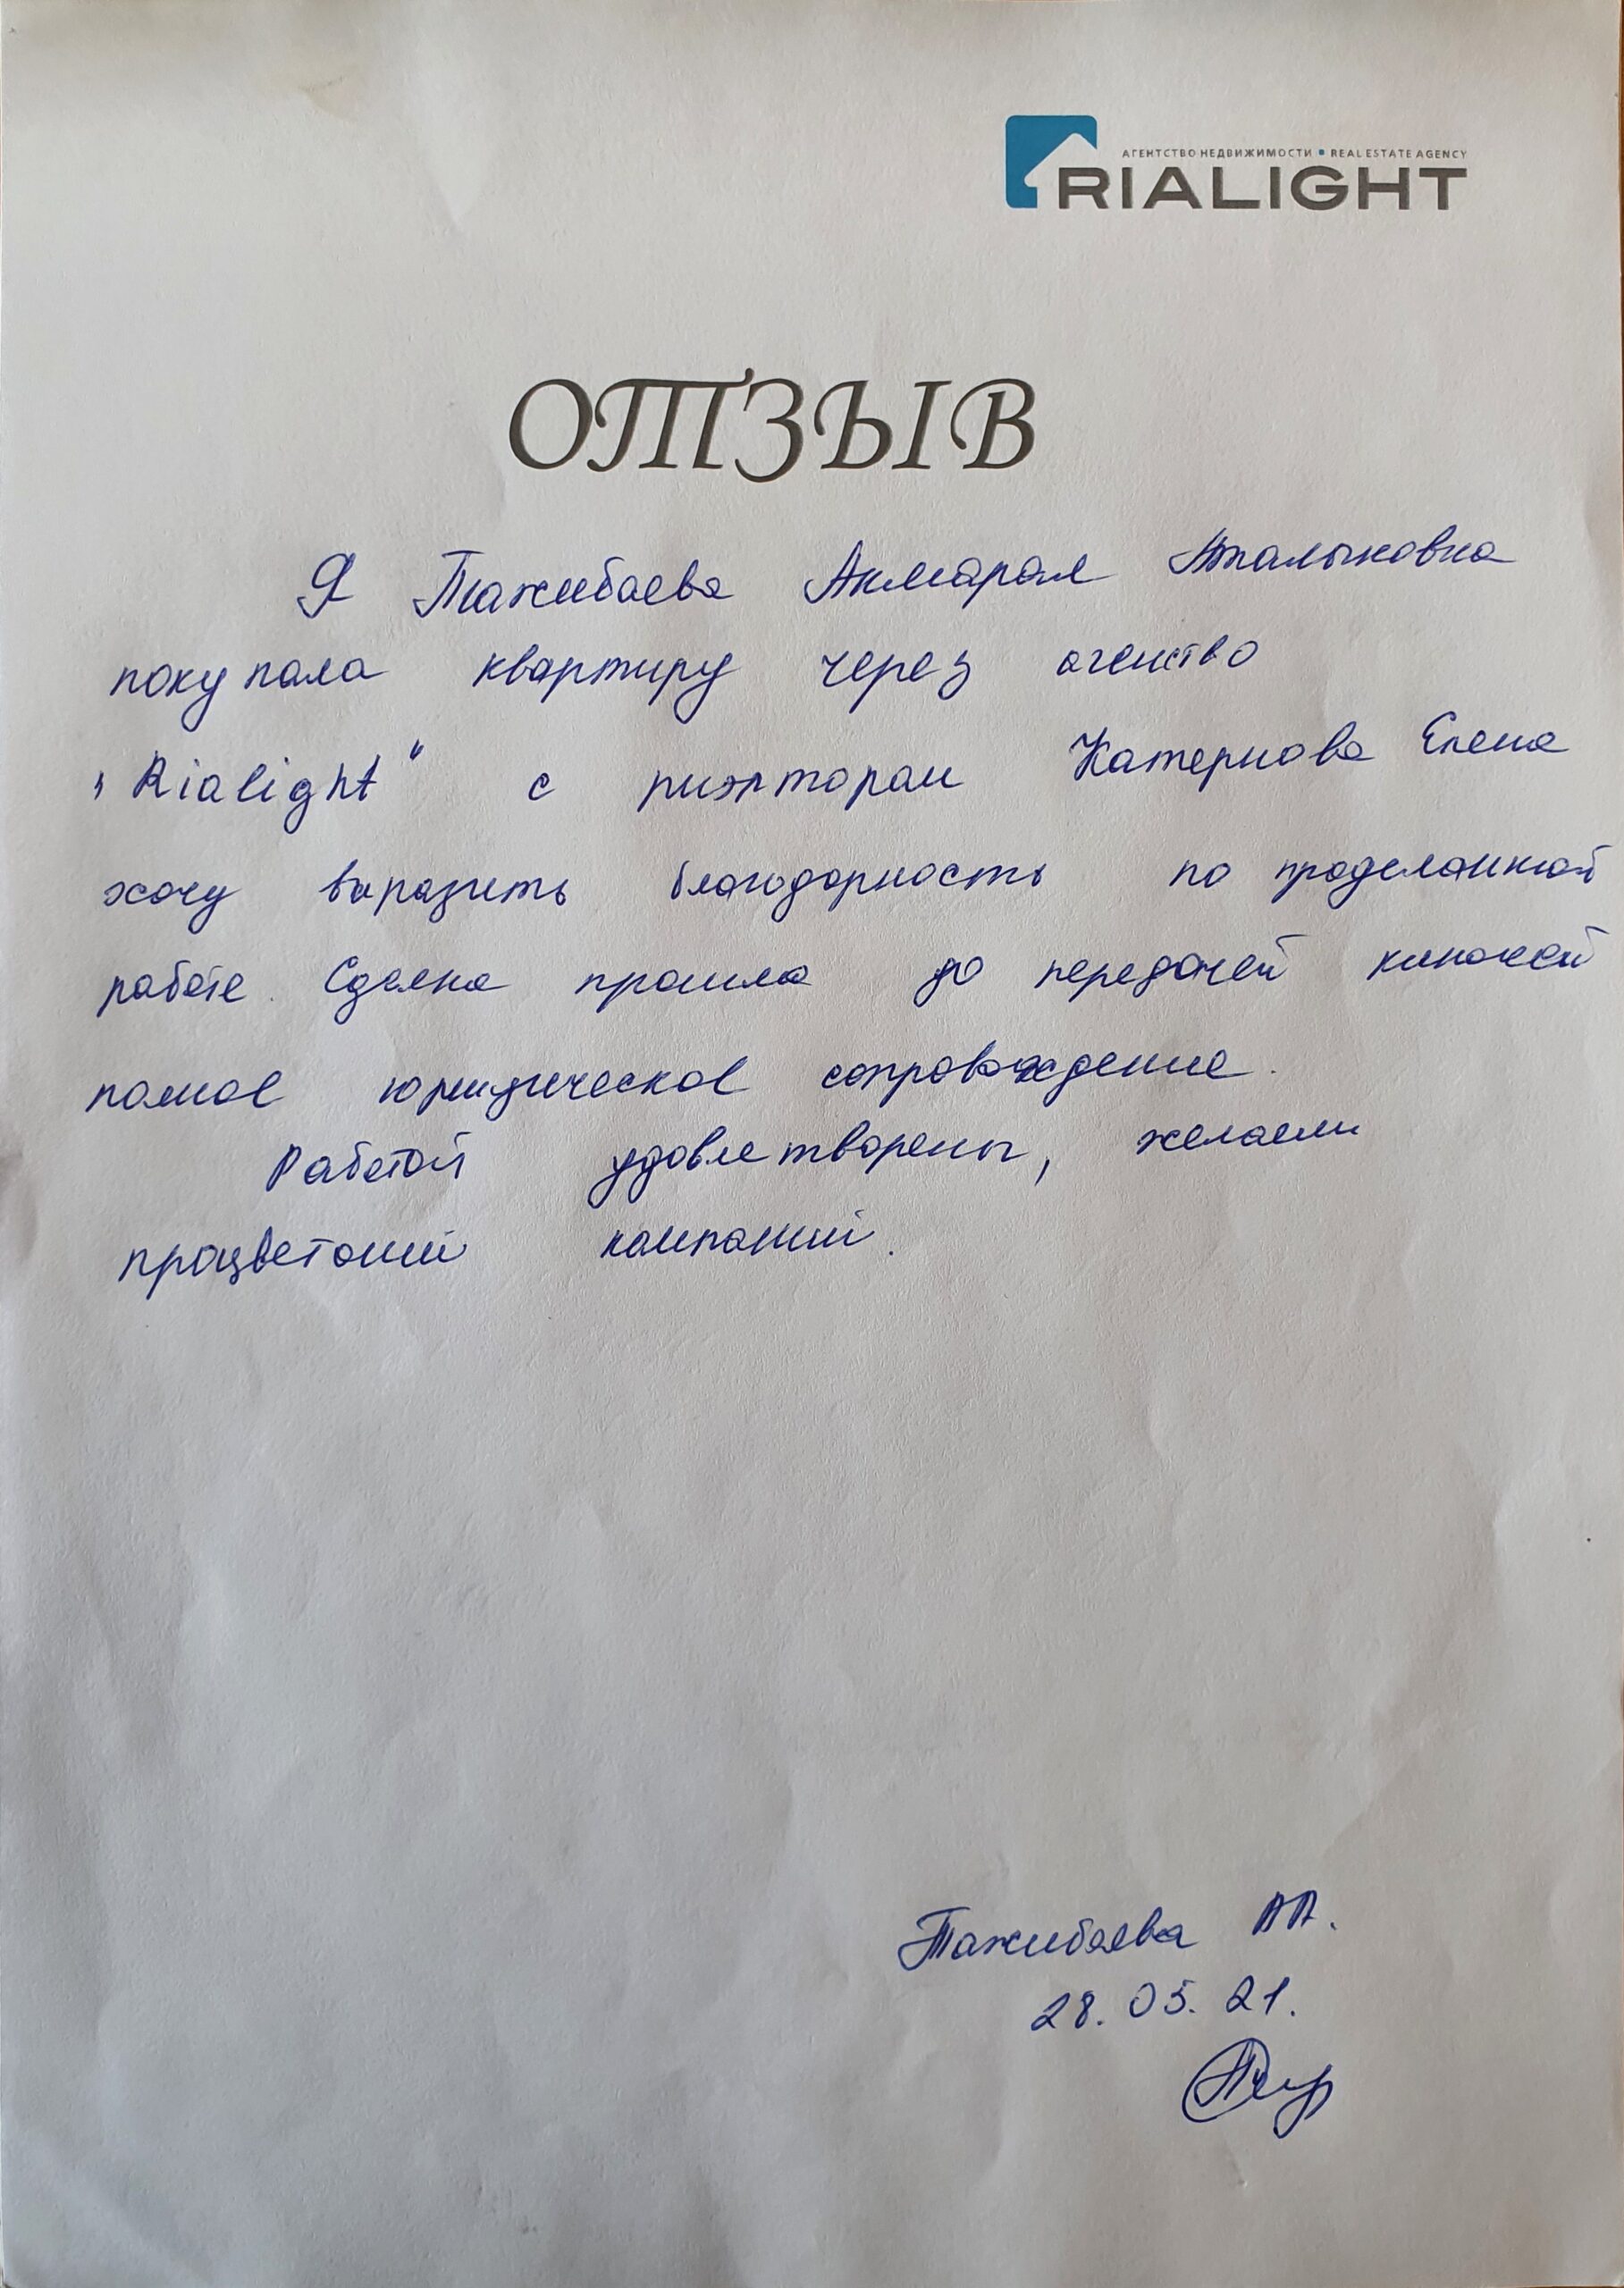 АГЕНТСТВО НЕДВИЖИМОСТИ ▪ REAL ESTATE AGENCY
RIALIGHT
ОТЗЫВ
Я Тажибаева Акмарал Аталыковна
покупала квартиру через агенство
"Rialight" с риэлтором Катернова Елена
хочу выразить благодарность по проделанной
работе. Сделка прошла до передачей ключей
полное юридическое сопровождение.
Работой удовлетворены, желаем
процветаний компаний.
Тажибаева АА.
28.05.21.